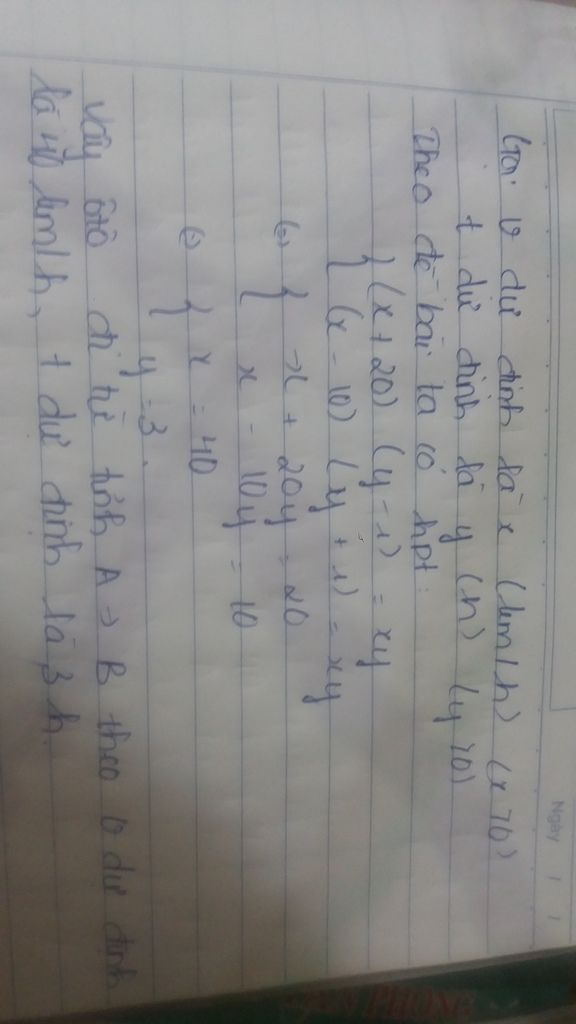 Ngày / /
Gọi v dự định là x (km/h) (x>0)
t dự định là y (h) (y>0)
Theo đề bài ta có hpt:
{ (x + 20) (y - 1) = xy
{ (x - 10) (y + 1) = xy
(=) { -x + 20y = 20
{ x - 10y = 10
(=) { x = 40
y = 3.
Vậy ôtô đi từ tỉnh A → B theo v dự định
là 40 km/h, t dự định là 3 h.